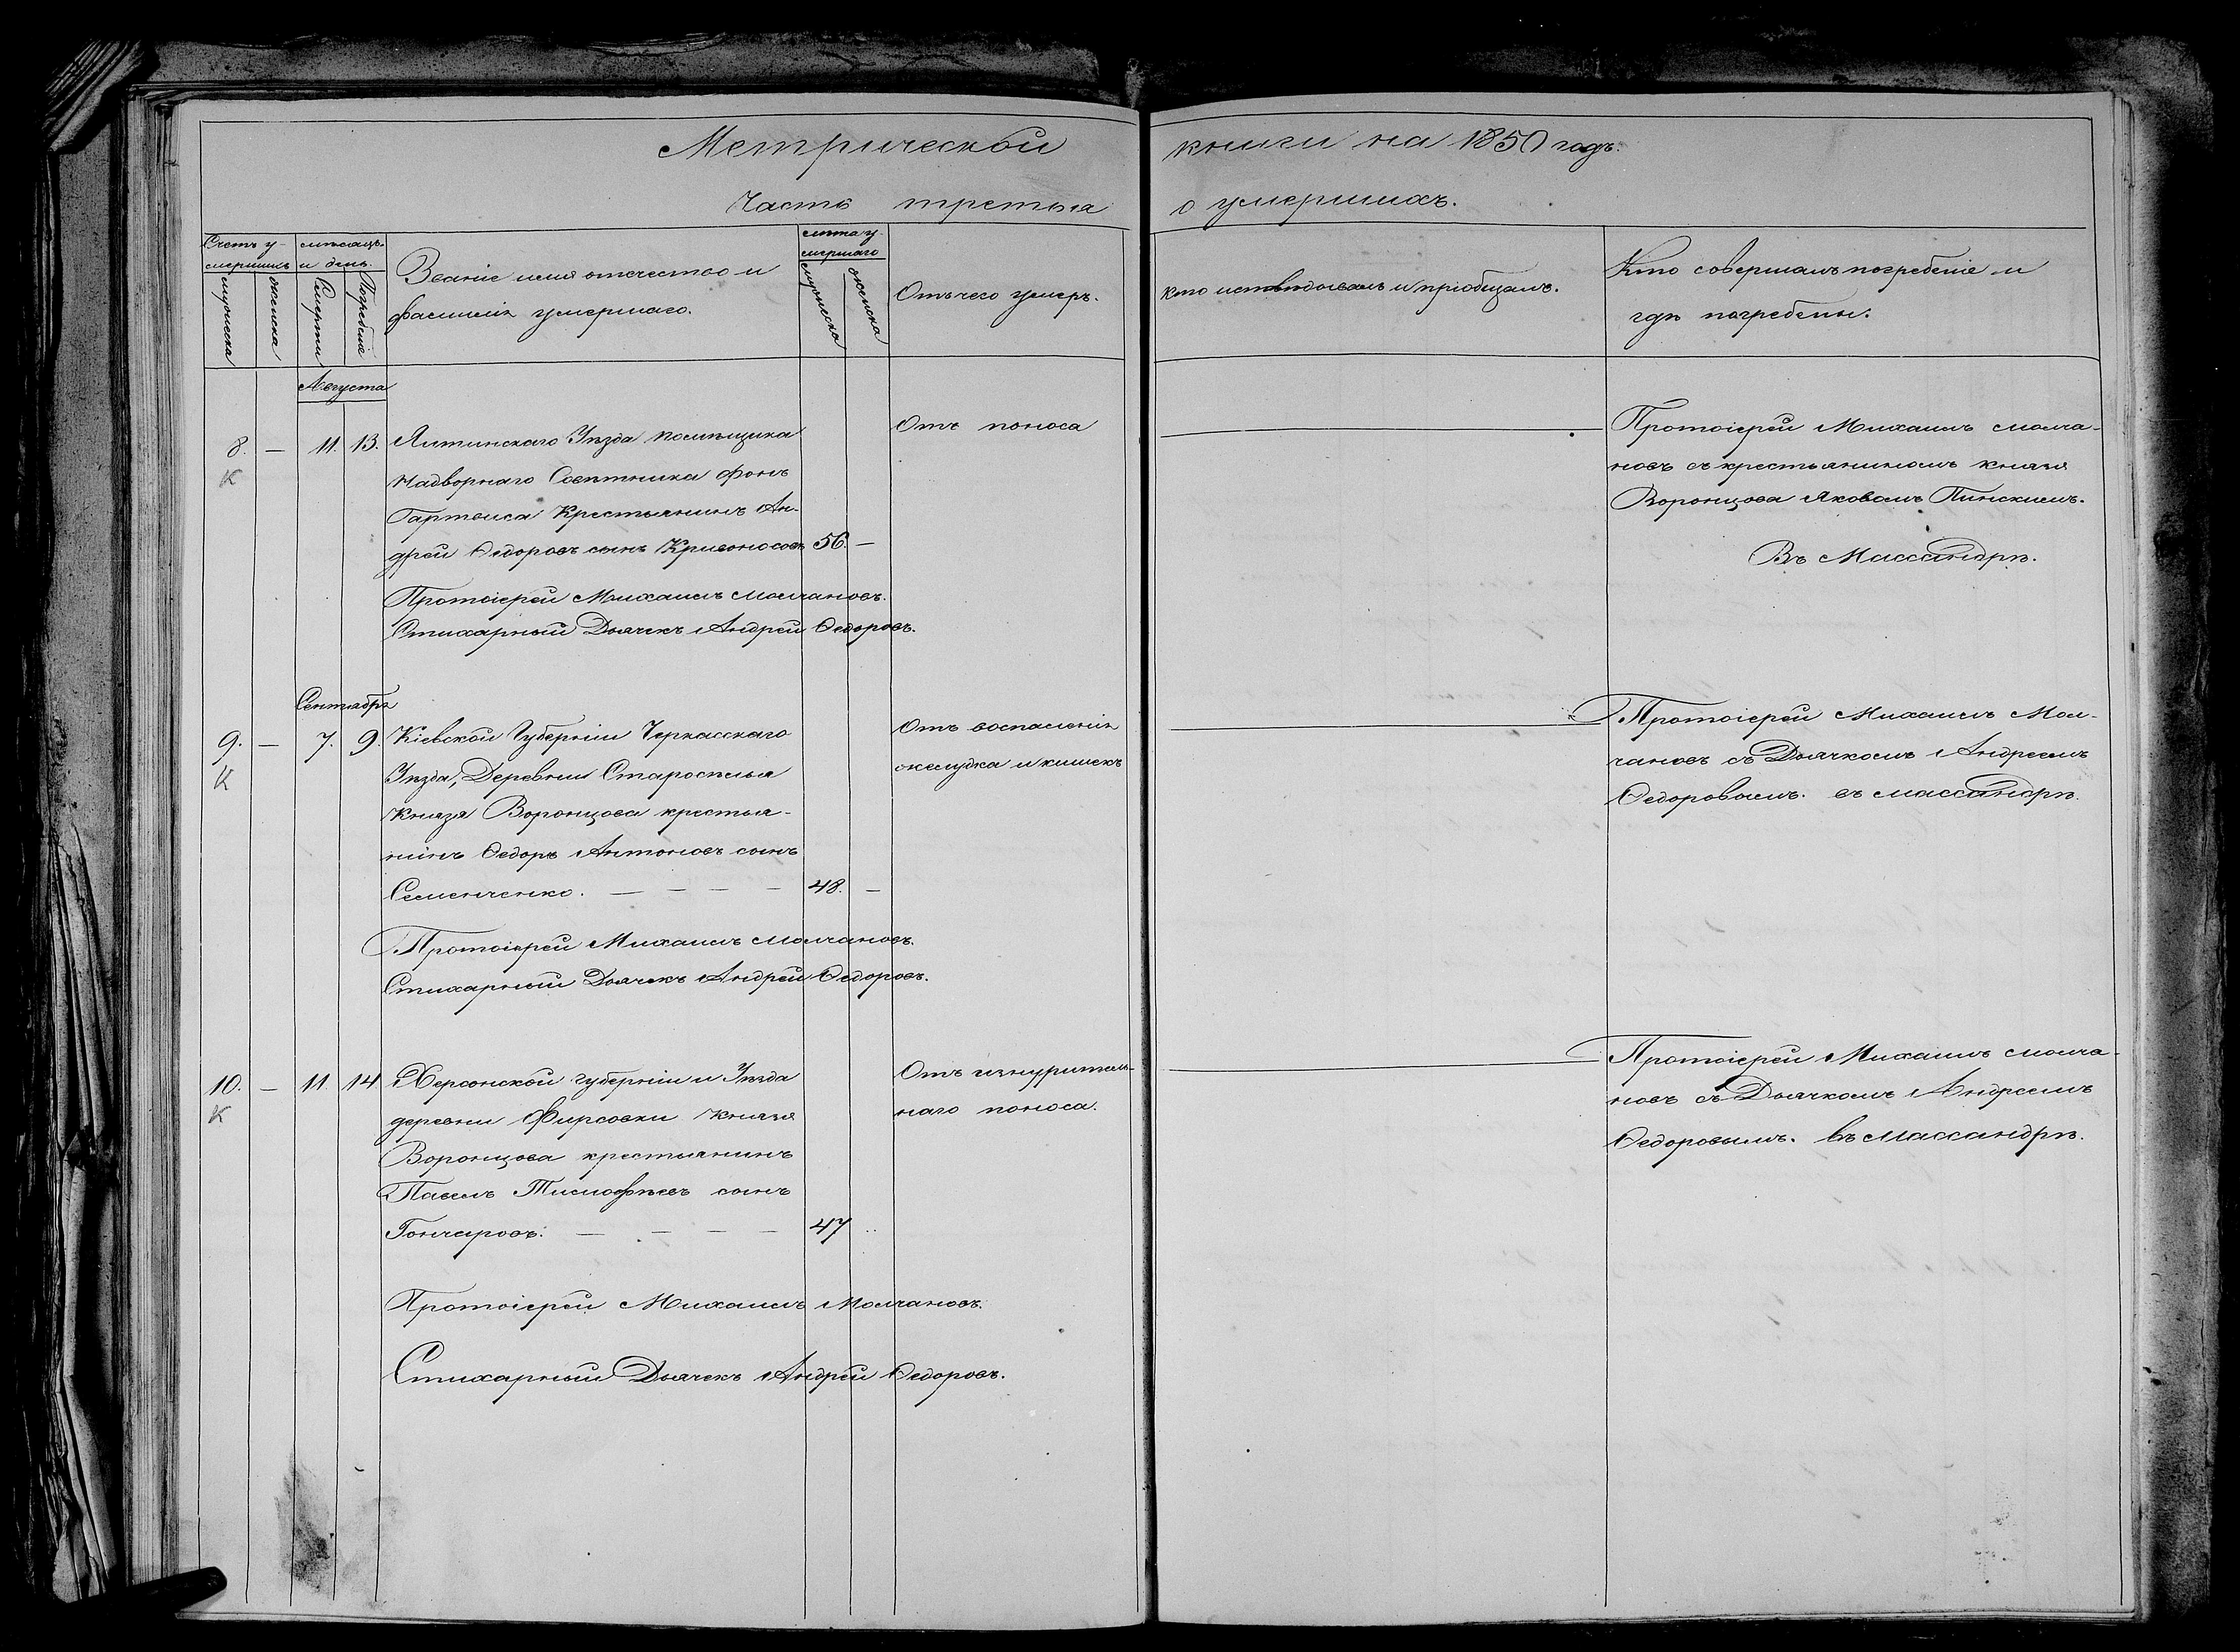 Метрической книги на 1850 годъ.
Часть третья о умершихъ.
Счетъ у-
мершихъ
мужеска
женска
мѣсяцъ
и день.
Смерти
Погребенія
Званіе имя отчество и
фамилія умершаго.
лѣта у-
мершаго
мужеска
женска
Отъ чего умеръ.
Кто исповѣдывалъ и пріобщалъ.
Кто совершалъ погребеніе и
гдѣ погребены.
Августа
8. — 11. 13. Ялтинскаго Уѣзда помѣщика
К
Надворнаго Совѣтника фонъ
Гартвиса Крестьянинъ Ан-
дрей Ѳедоровъ сынъ Кривоносовъ 56. —
Отъ поноса
Протоіерей Михаилъ Молча-
новъ съ крестьяниномъ князя
Воронцова Яковомъ Пинскимъ.
Въ Массандрѣ.
Протоіерей Михаилъ Молчановъ.
Стихарный Дьячекъ Андрей Ѳедоровъ.
Сентября
9. — 7. 9. Кіевской Губерніи Черкасскаго
К
Уѣзда, Деревни Староселья
Князя Воронцова крестья-
нинъ Ѳедоръ Антоновъ сынъ
Семенченко. — — — — 48. —
Отъ воспаленія
желудка и кишекъ
Протоіерей Михаилъ Мол-
чановъ съ Дьячкомъ Андреемъ
Ѳедоровымъ. въ Массандрѣ.
Протоіерей Михаилъ Молчановъ.
Стихарный Дьячекъ Андрей Ѳедоровъ.
10. — 11. 14 Херсонской губерніи и Уѣзда
К
деревни Фирсовки Князя
Воронцова крестьянинъ
Павелъ Тимофѣевъ сынъ
Гончаровъ. — — — — 47 ..
Отъ изнуритель-
наго поноса.
Протоіерей Михаилъ Молча-
новъ съ Дьячкомъ Андреемъ
Ѳедоровымъ. въ Массандрѣ.
Протоіерей Михаилъ Молчановъ.
Стихарный Дьячекъ Андрей Ѳедоровъ.